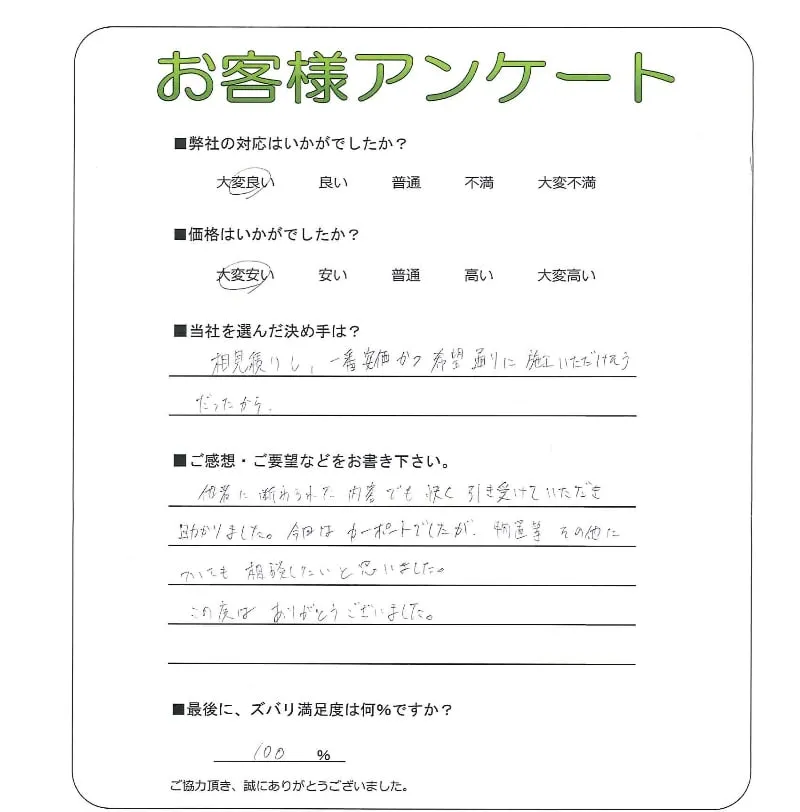 お客様アンケート
■弊社の対応はいかがでしたか？
大変良い 良い 普通 不満 大変不満
■価格はいかがでしたか？
大変安い 安い 普通 高い 大変高い
■当社を選んだ決め手は？
相見積りし、一番安価かつ希望通りに施工いただけそう
だったから。
■ご感想・ご要望などをお書き下さい。
他者に断わられた内容でも快く引き受けていただき
助かりました。今回はカーポートでしたが、物置等その他に
ついても相談したいと思いました。
この度はありがとうございました。
■最後に、ズバリ満足度は何％ですか？
100 ％
ご協力頂き、誠にありがとうございました。